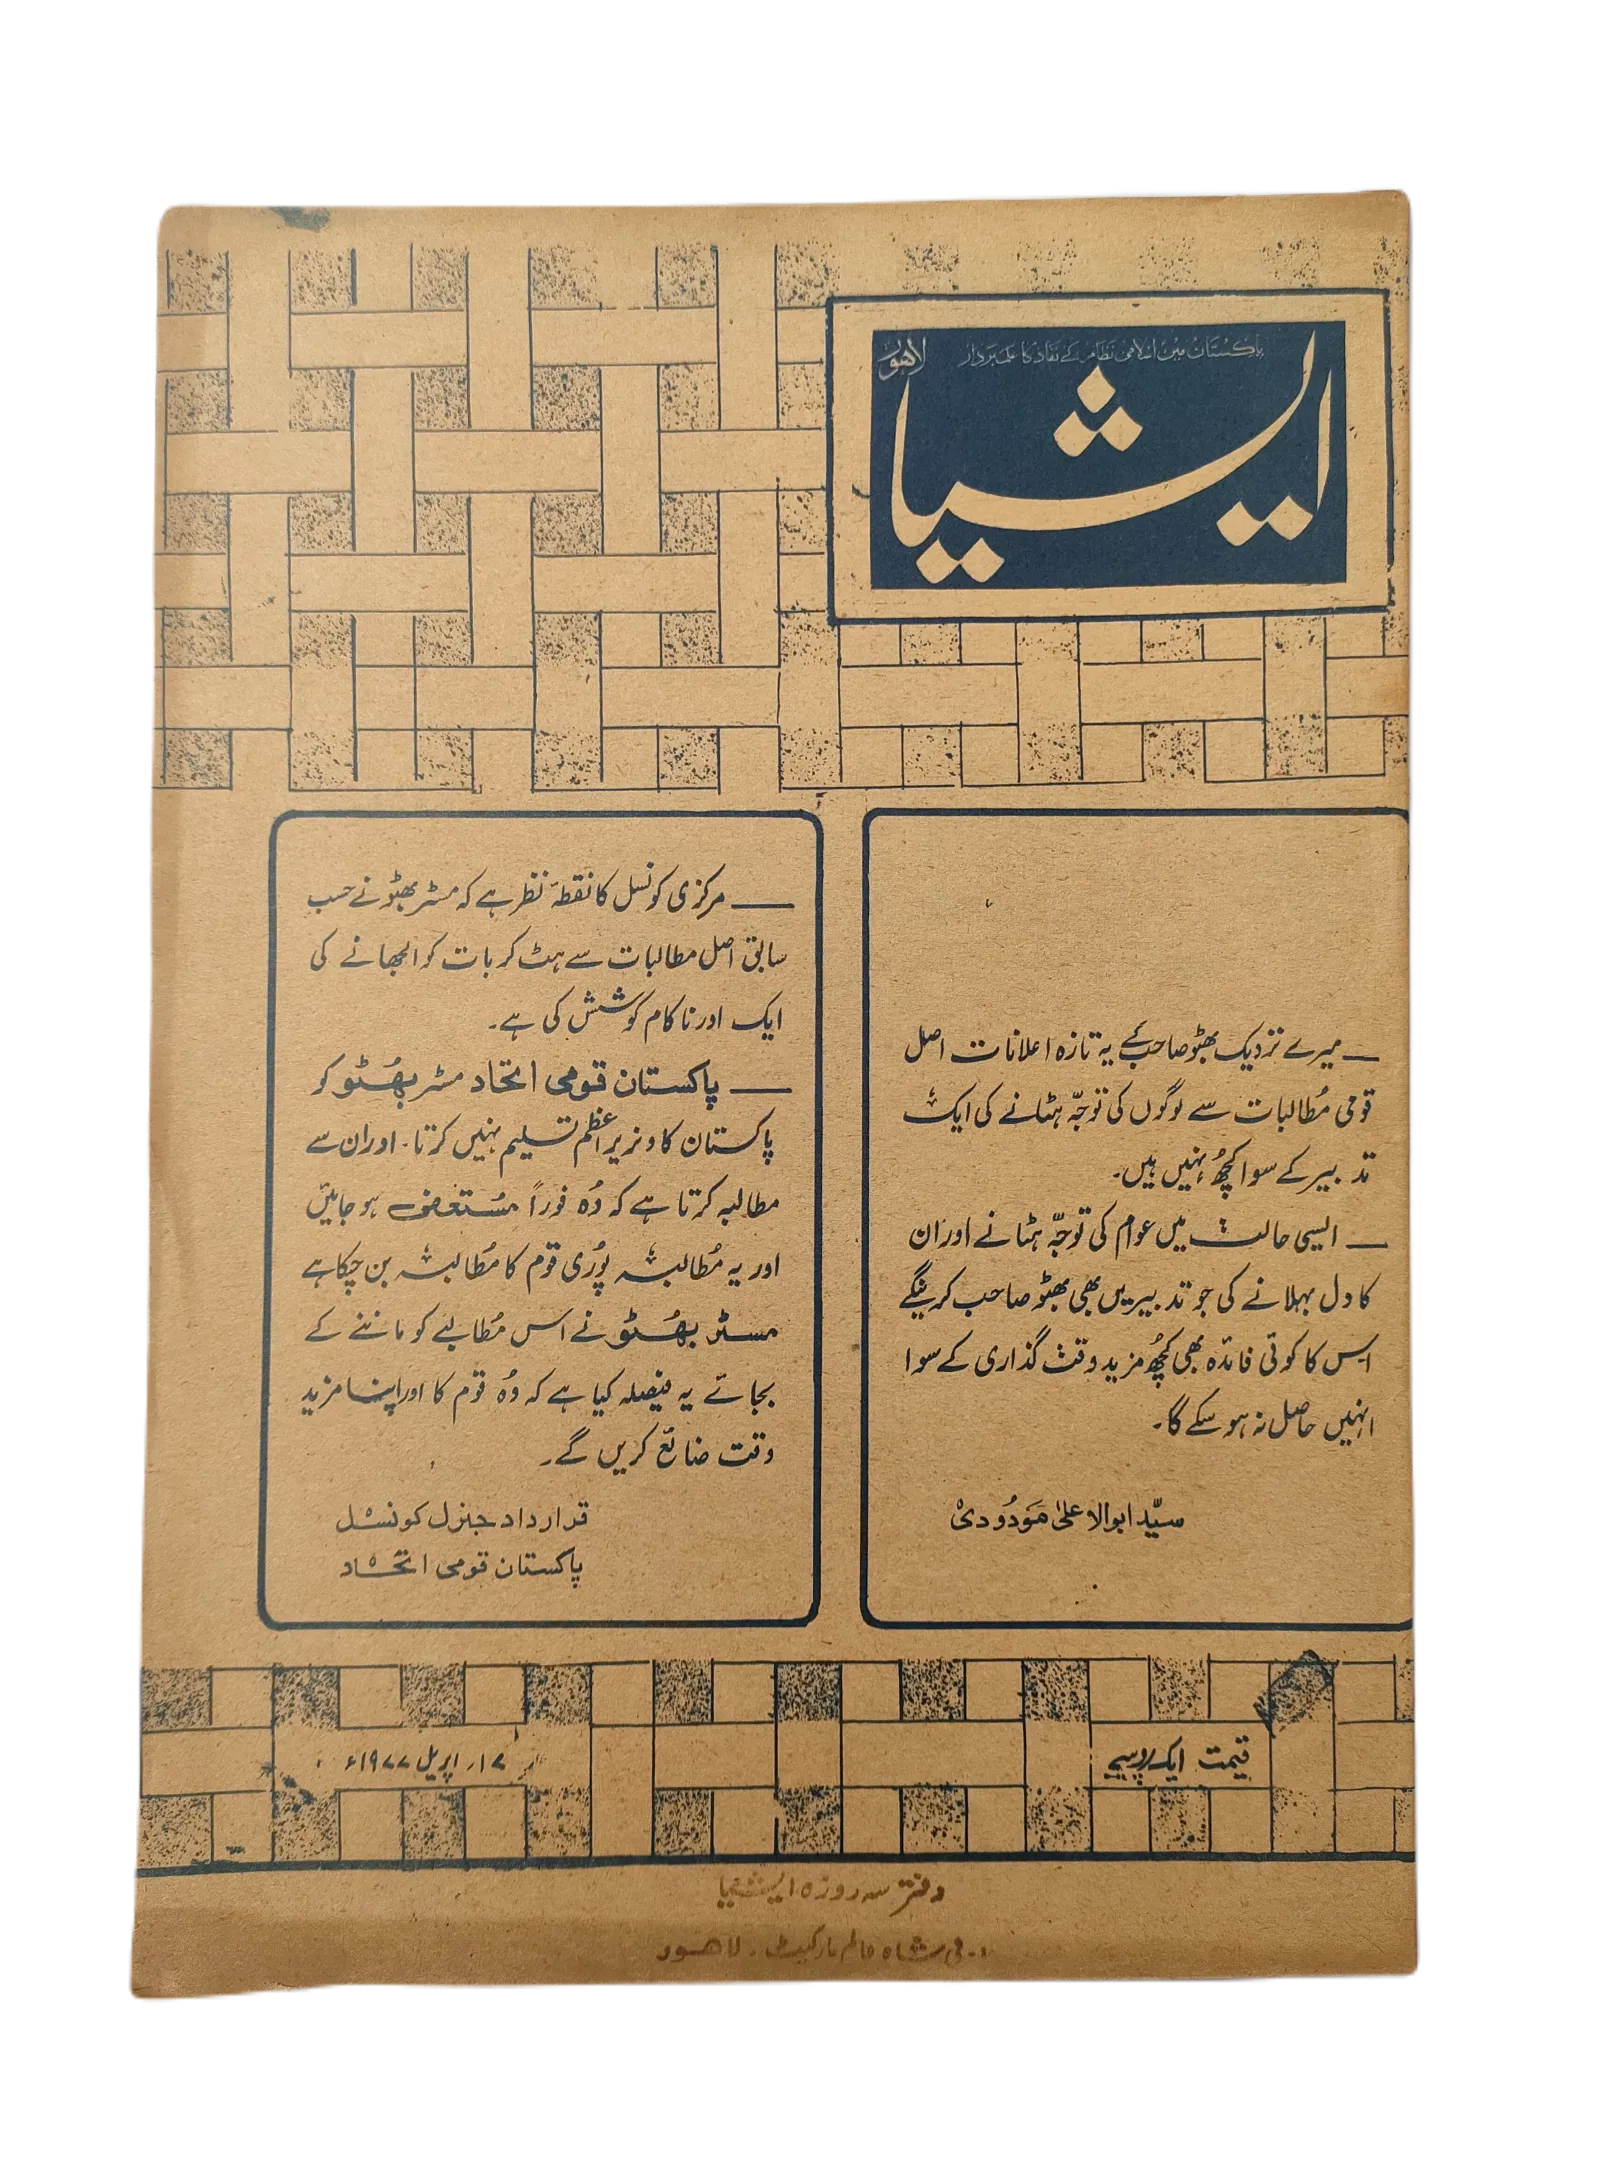 پاکستان میں اسلامی نظام کے نفاذ کا علمبردار
لاہور
ایشیا
— میرے نزدیک بھٹو صاحب کے یہ تازہ اعلانات اصل
قومی مُطالبات سے لوگوں کی توجّہ ہٹانے کی ایک
تدبیر کے سوا کچھُ نہیں ہیں۔
— ایسی حالت میں عوام کی توجّہ ہٹانے اور ان
کا دل بہلانے کی جو تدبیریں بھی بھٹو صاحب کرینگے
اس کا کوئی فائدہ بھی کچھُ مزید وقت گذاری کے سوا
انہیں حاصل نہ ہو سکے گا۔
سیّد ابوالاعلیٰ مَودُودی
— مرکزی کونسل کا نقطۂ نظر ہے کہ مسٹر بھٹو نے حسب
سابق اصل مطالبات سے ہٹ کر بات کو الجھانے کی
ایک اور ناکام کوشش کی ہے۔
— پاکستان قومی اتحاد مسٹر بھُٹو کو
پاکستان کا وزیر اعظم تسلیم نہیں کرتا۔ اور ان سے
مطالبہ کرتا ہے کہ وُہ فوراً مُستعفی ہو جائیں
اور یہ مُطالبہ پُوری قوم کا مُطالبہ بن چکا ہے
مسٹر بھُٹو نے اس مُطالبے کو ماننے کے
بجائے یہ فیصلہ کیا ہے کہ وُہ قوم کا اور اپنا مزید
وقت ضائع کریں گے۔
قرارداد جنرل کونسل
پاکستان قومی اتحاد
قیمت ایک روپیے
۱۷ اپریل ۱۹۷۷ء
دفتر سہ روزہ ایشیا
شاہ عالم مارکیٹ۔ لاہور